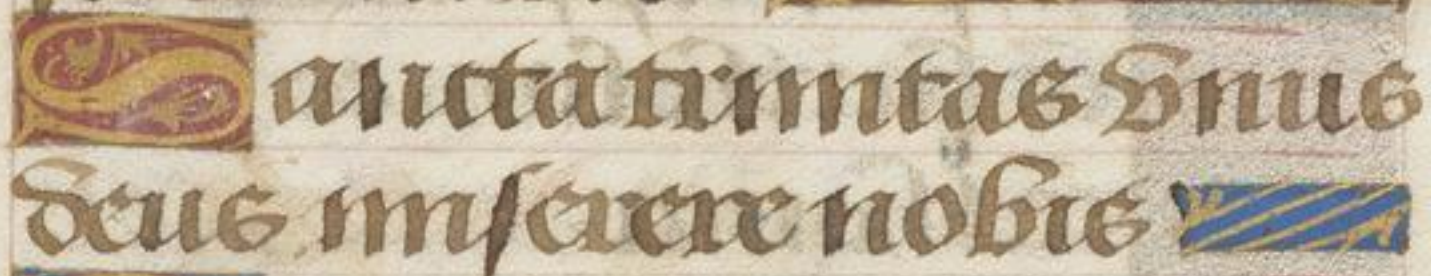 Sancta trinitas vnus
deus miserere nobis